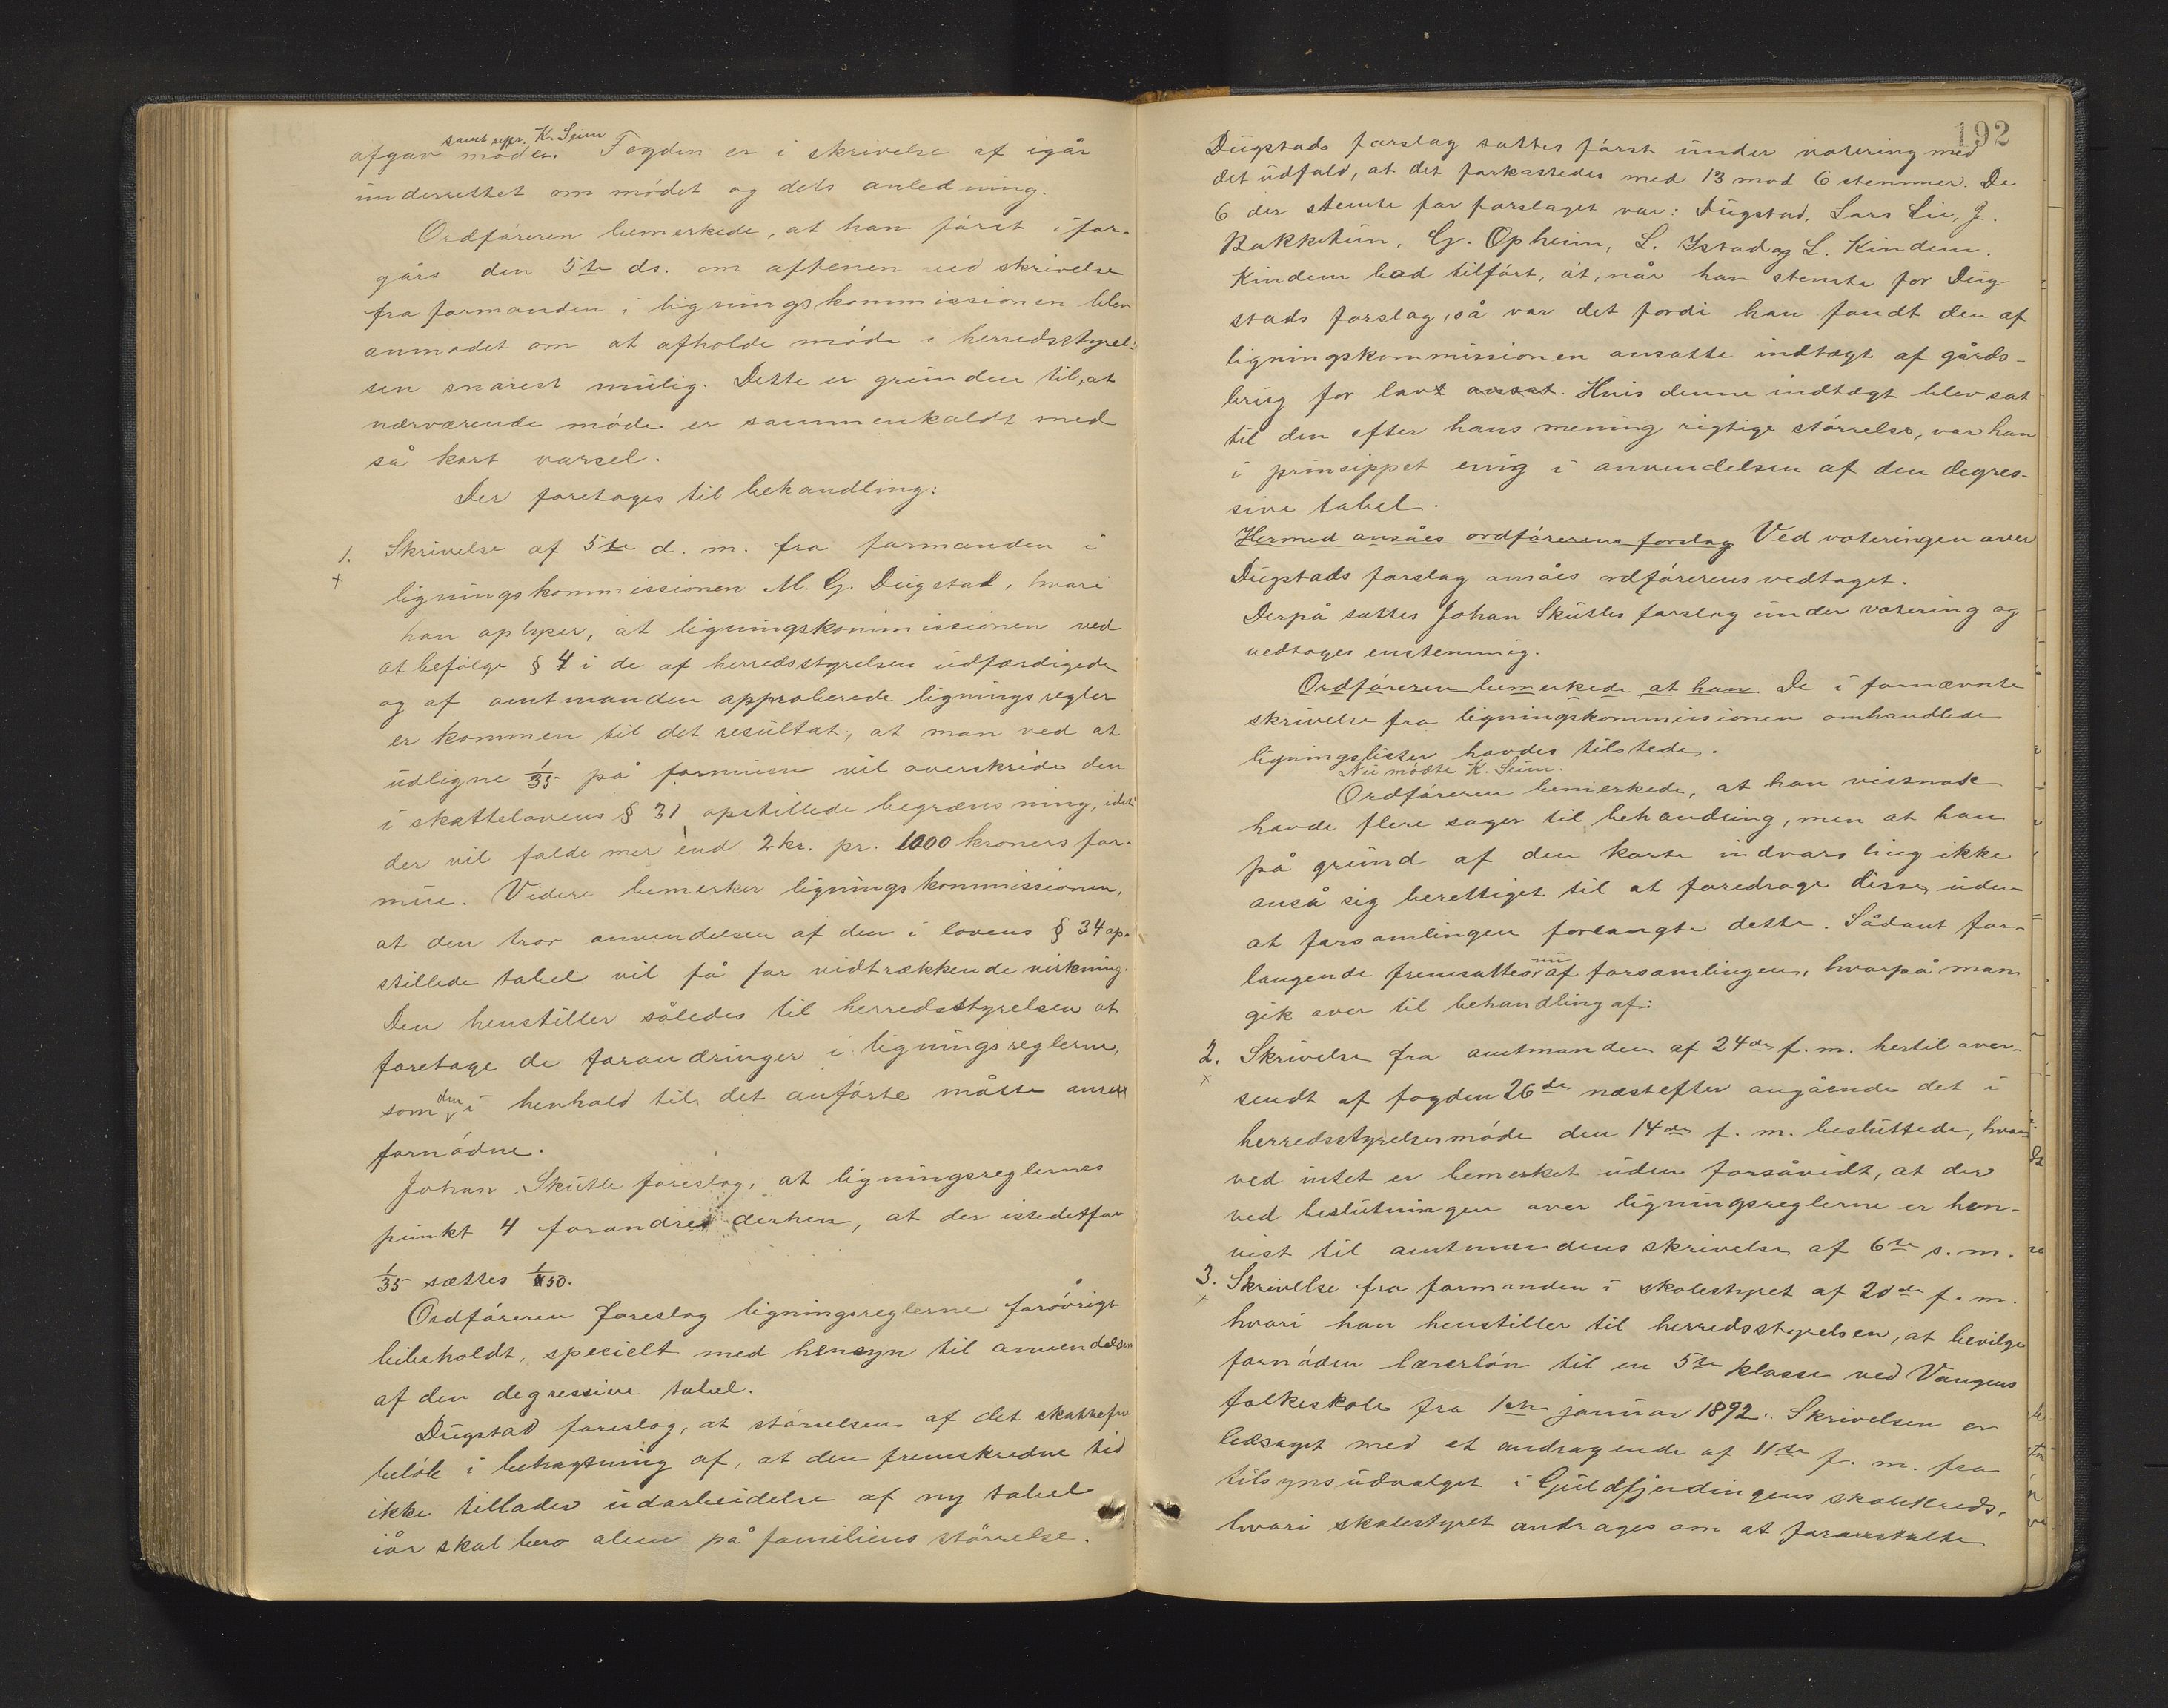 samt repr. K. Seim
afgav møde. Fogden er i skrivelse af igår
underrettet om mødet og dets anledning.
Ordføreren bemerkede, at han først ifor-
gårs den 5te ds. om aftenen ved skrivelse
fra formanden i ligningskommissionen blev
anmodet om at afholde møde i herredsstyrel-
sen snarest mulig. Dette er grunden til, at
nærværende møde er sammenkaldt med
så kort varsel.
Der foretoges til behandling:
1. Skrivelse af 5te d. m. fra formanden i
ligningskommissionen M. G. Dugstad, hvori
han oplyser, at ligningskommissionen ved
at befølge § 4 i de af herredsstyrelsen udfærdigede
og af amtmanden approberede ligningsregler
er kommen til det resultat, at man ved at
udligne 1/35 på formuen vil overskride den
i skattelovens § 31 opstillede begrænsning, idet
der vil falde mer end 2 kr. pr. 1000 kroners for-
mue. Videre bemerker ligningskommissionen,
at den tror anvendelsen af den i lovens § 34 op-
stillede tabel vil få for vidtrækkende virkning.
Den henstiller således til herredsstyrelsen at
foretage de forandringer i ligningsreglerne,
som den i henhold til det anførte måtte anse
fornødne.
Johan Skutle foreslog, at ligningsreglernes
punkt 4 forandres derhen, at der istedetfor
1/35 sættes 1/50.
Ordføreren foreslog ligningsreglerne forøvrigt
bibeholdt, specielt med hensyn til anvendelsen
af den degressive tabel.
Dugstad foreslog, at størrelsen af det skattefri
beløb i betragtning af, at den fremskredne tid
ikke tillader udarbeidelse af ny tabel
iår skal bero alene på familiens størrelse.
192
Dugstads forslag sattes først under votering med
det udfald, at det forkastedes med 13 mod 6 stemmer. De
6 der stemte for forslaget var: Dugstad, Lars Lie, J.
Bakketun, G. Opheim, L. Istad og L. Kindem.
Kindem bad tilført, at, når han stemte for Dug-
stads forslag, så var det fordi han fandt den af
ligningskommissionen ansatte indtægt af gårds-
brug for lavt ansat. Hvis denne indtægt blev sat
til den efter hans mening rigtige størrelse, var han
i prinsippet enig i anvendelsen af den degres-
sive tabel.
Hermed ansåes ordførerens forslag Ved voteringen over
Dugstads forslag ansåes ordførerens vedtaget.
Derpå sattes Johan Skutles forslag under votering og
vedtoges enstemmig.
Ordføreren bemerkede at han De i fornævnte
skrivelse fra ligningskommissionen omhandlede
ligningslister havdes tilstede.
Nu mødte K. Seim.
Ordføreren bemerkede, at han vistnok
havde flere sager til behandling, men at han
på grund af den korte indvarsling ikke
anså sig berettiget til at foredrage disse, uden
at forsamlingen forlangte dette. Sådant for-
langende fremsattes nu af forsamlingen, hvorpå man
gik over til behandling af:
2. Skrivelse fra amtmanden af 24de f. m. hertil over-
sendt af fogden 26de næstefter angående det i
herredsstyrelsesmøde den 14de f. m. besluttede, hvor-
ved intet er bemerket uden forsåvidt, at der
ved beslutningen over ligningsreglerne er hen-
vist til amtmandens skrivelse af 6te s. m.
3. Skrivelse fra formanden i skolestyret af 20de f. m.
hvori han henstiller til herredsstyrelsen, at bevilge
fornøden lærerløn til en 5te klasse ved Vangens
folkeskole fra 1ste januar 1892. Skrivelsen er
ledsaget med et andragende af 11te f. m. fra
tilsynsudvalget i Guldfjerdingens skolekreds,
hvori skolestyret andrages om at foranstalte